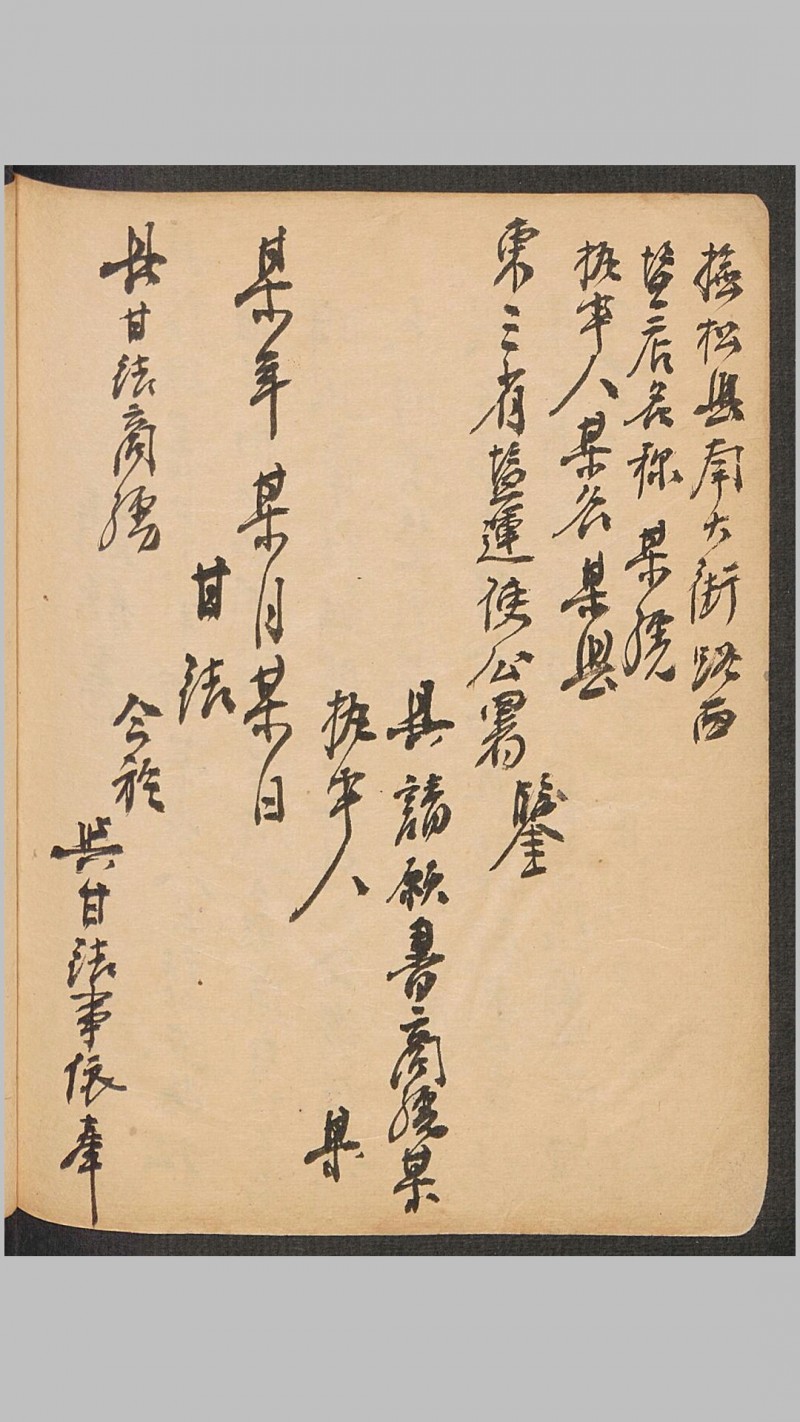 撫松縣南大街路西
鹽店名稱 某號
執事人某名某縣
東三省鹽運使公署 鑒
具請願書商號某
執事人 某
某年某月某日
甘結
具甘結商號 今於
與甘結事依奉